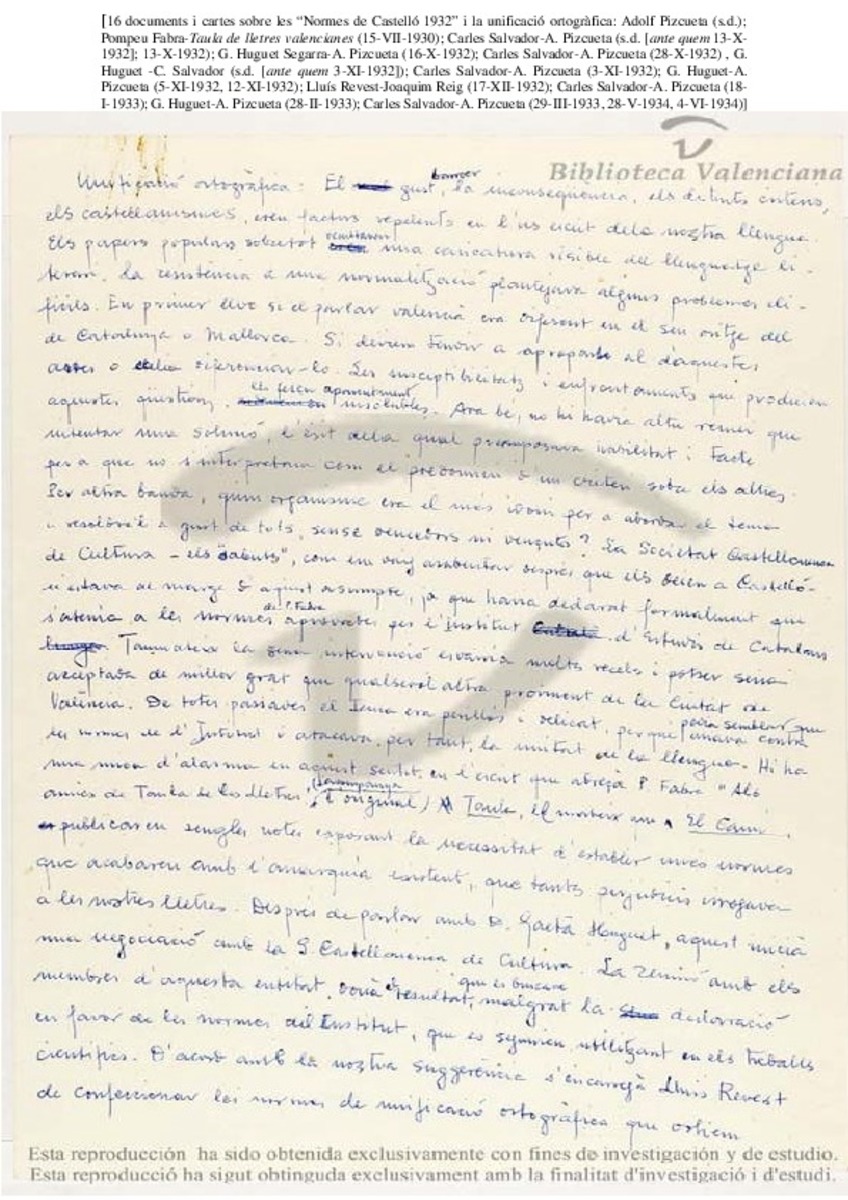 [16 documents i cartes sobre les “Normes de Castelló 1932” i la unificació ortogràfica: Adolf Pizcueta (s.d.);
Pompeu Fabra-Taula de lletres valencianes (15-VII-1930); Carles Salvador-A. Pizcueta (s.d. [ante quem 13-X-
1932]; 13-X-1932); G. Huguet Segarra-A. Pizcueta (16-X-1932); Carles Salvador-A. Pizcueta (28-X-1932) , G.
Huguet -C. Salvador (s.d. [ante quem 3-XI-1932]); Carles Salvador-A. Pizcueta (3-XI-1932); G. Huguet-A.
Pizcueta (5-XI-1932, 12-XI-1932); Lluís Revest-Joaquim Reig (17-XII-1932); Carles Salvador-A. Pizcueta (18-
I-1933); G. Huguet-A. Pizcueta (28-II-1933); Carles Salvador-A. Pizcueta (29-III-1933, 28-V-1934, 4-VI-1934)]
Biblioteca Valenciana
Unificació ortogràfica: El gust, la inconseqüencia, els distints criteris,
els castellanismes, eren factors repelents en l'us escrit dela nostra llengua.
Els papers populars sobretot una caricatura risible del llenguatge li-
terari. La resistència a una normalització plantejava alguns problemes di-
ficils. En primer lloc si el parlar valencià era diferent en el seu oritge del
de Catalunya o Mallorca. Si deviem tendir a apropar-lo al d'aquestes
o diferenciar-lo. Les susceptibilitats i enfrontaments que produien
aquestes qüestions, els feien aparentment insolubles. Ara bé, no hi havia altre remei que
intentar una solució, l'èxit dela qual pressuposava habilitat i tacte
per a que no s'interpretara com el predomini d'un criteri sobre els altres.
Per altra banda, quin organisme era el més idoni per a abordar el tema
i resoldre'l a gust de tots, sense vencedors ni vençuts? La Societat Castellonenca
de Cultura – els "sabuts", com em vaig assabentar després que els deien a Castelló-
estava al marge d'aquest assumpte, ja que havia declarat formalment que
s'atenia a les normes de P. Fabra aprovades per l'Institut d'Estudis de Catalans
Tanmateix la seua intervenció esvairia molts recels i potser seria
acceptada de millor grat que qualsevol altra provinent de la Ciutat de
València. De totes passaves el tema era perillós i delicat, perquè podia semblar que anava contra
les normes de l'Institut i atacava, per tant, la unitat de la llengua. Hi ha
una nota d'alarma en aquest sentit, en l'escrit que adreçà P. Fabra "Als
amics de Taula de les Lletres", (s'acompanya l'original) A Taula, el mateix que a El Camí,
publicaren sengles notes exposant la necessitat d'establir unes normes
que acabaren amb l'anarquia existent, que tants perjudicis irrogava
a les nostres lletres. Després de parlar amb D. Gaetà Huguet, aquest inicià
una negociació amb la S. Castellonenca de Cultura. La reunió amb els
membres d'aquesta entitat, donà el resultat, que es buscava malgrat la declaració
en favor de les normes del Institut, que es seguirien utilitzant en els treballs
cientifics. D'acord amb la nostra suggerència s'encarregà Lluis Revest
de confeccionar les normes de unificació ortogràfica que
Esta reproducción ha sido obtenida exclusivamente con fines de investigación y de estudio.
Esta reproducció ha sigut obtinguda exclusivament amb la finalitat d'investigació i d'estudi.